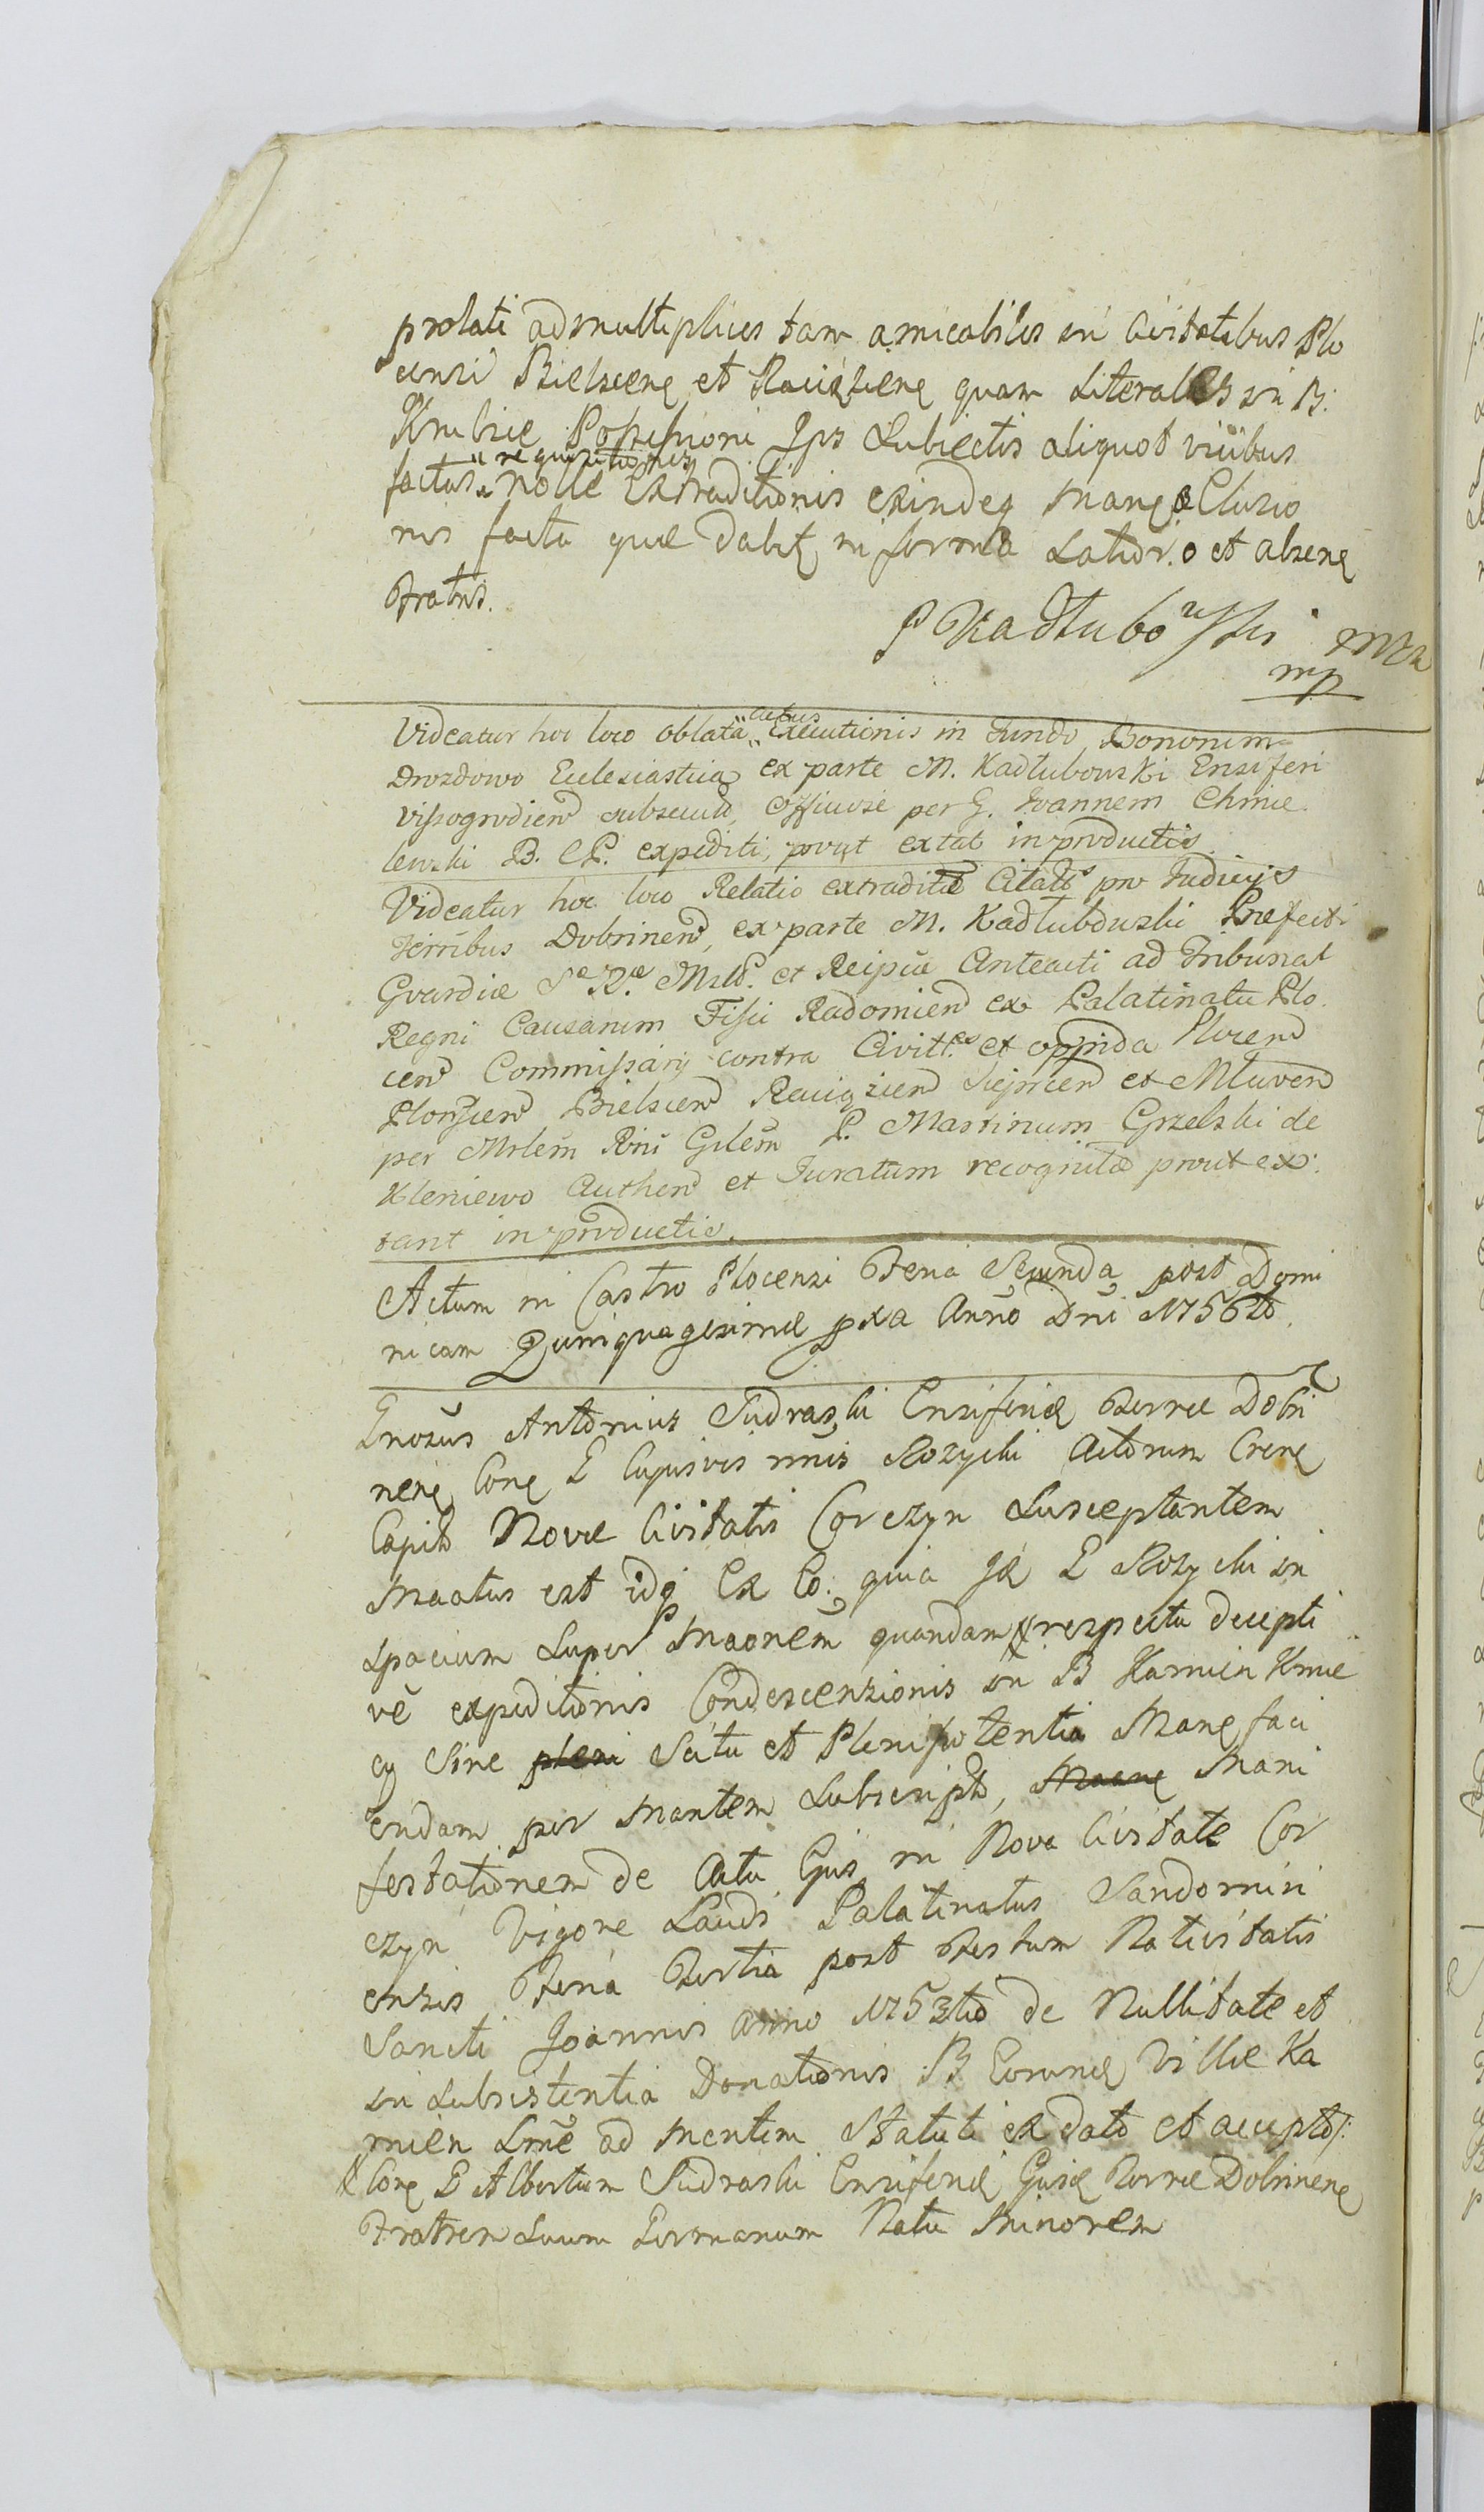 prolati ad multiplices tam amicabiles in Civitatibus Plo
censi Bielscenę et Raciązienę quam Literales in B:
Krubice Possessioni Ips Subiectis aliquot vicibus
factas " requisitiones nolle Extraditionis exindeq Manę Clusio
nis facta quæ dabit in forma Latiori et absenę
Fratris.
P Kadłubowski MW
mp
Videatur hoc loco oblata " actus " Executionis in Fundo Bonorum
Drozdowo Ecclesiasticą ex parte M. Kadłubowski Ensiferi
Vissogrodien subsecuti, officiose per G. Joannem Chmie
lewski B. C.P. expediti, prout extat in productis.
Videatur hoc loco Relatio extraditæ Citatis pro Judicijs
Terribus Dobrinen, ex parte M. Kadłubowski Præfecti
Gvardiæ S æ R æ Mttis. et Reipcæ Anteacti ad Tribunal
Regni Causarum Fisci Radomien ex Palatinatu Plo.
cen Commissarij contra Civittes et oppida Plocen
Plonscen Bielscen Raciązien Sieprcen et Mlaven
per Mrlem Rni Gnlem P. Martinum Grzelski de
Kleniewo Authen et Juratum recognitæ prout ex:
tant in productis.
Actum in Castro Plocensi Feria Secunda post Domi
nicam Quinquagesimæ pxa Anno Dni 1756to.
Gnosus Antonius Sudraski Ensiferid Terræ Dobri
nenę Conę G Cuiusvis nnis Rozycki Actorum Crenę
Capitt Novæ Civitatis Corczyn Susceptantem
Maatus est idq Ex Eo. quia Id G Rozycki in
spacium super Maonem quandam # respectu decepti
ve expeditionis Condescensionis in B Kamien Kmie
cy Sine pleni Scitu et Plenipotentia Manę faci
endam per Mantem Subscript, Maanę Mani
festationem de Actu Ejus in Nova Civitate Cor
czyn Vigore Laudi Palatinatus Sandomiri
ensis Feria Tertia post Festum Nativitatis
Sancti Joannis Anno 1753tio de Nullitate et
in Subsistentia Donationis B Eorund Villæ Ka
mien Lme ad mentem Statuti ex dato et accepto/:
# Conę G Albertum Sudraski Ensiferid Ejusd Terræ Dobrinenę
Fratrem Suum Germanum Natu Minorem